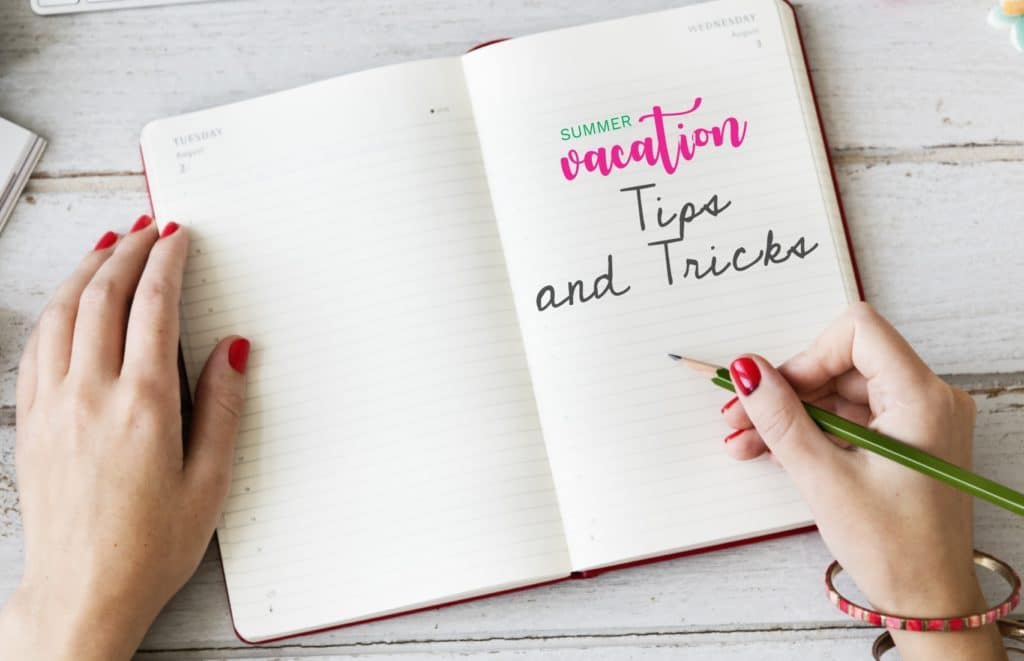 TUESDAY
August
2
WEDNESDAY
August
3
SUMMER
vacation
Tips
and Tricks